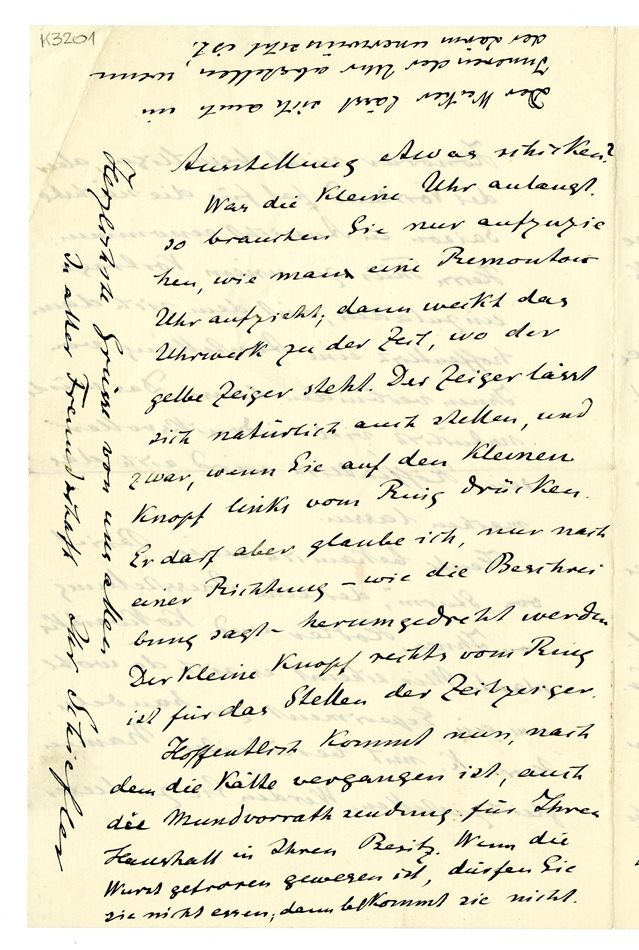 K3201
Ausstellung etwas schicken?
Was die kleine Uhr anlangt.
so brauchen Sie nur aufzuzie
hen, wie man eine Remontoir
Uhr aufzieht; dann weckt das
Uhrwerk zu der Zeit, wo der
gelbe Zeiger steht. Der Zeiger lässt
sich natürlich auch stellen, und
zwar, wenn Sie auf den kleinen
Knopf links vom Ring drücken.
Er darf aber glaube ich, nur nach
einer Richtung – wie die Beschrei
bung sagt – herumgedreht werden
Der kleine Knopf rechts vom Ring
ist für das Stellen der Zeitzeiger.
Hoffentlich kommt nun, nach
dem die Kälte vergangen ist, auch
die Mundvorrathsendung für Ihren
Haushalt in Ihren Besitz. Wenn die
Wurst gefroren gewesen ist, dürfen Sie
sie nicht essen; dann bekommt sie nicht.
Herzlichste Grüsse von uns allen
In alter Freundschaft Ihr Schiefler
Der Wecker lässt sich auch im
Inneren der Uhr abstellen, wenn
der Lärm unerwünscht ist.